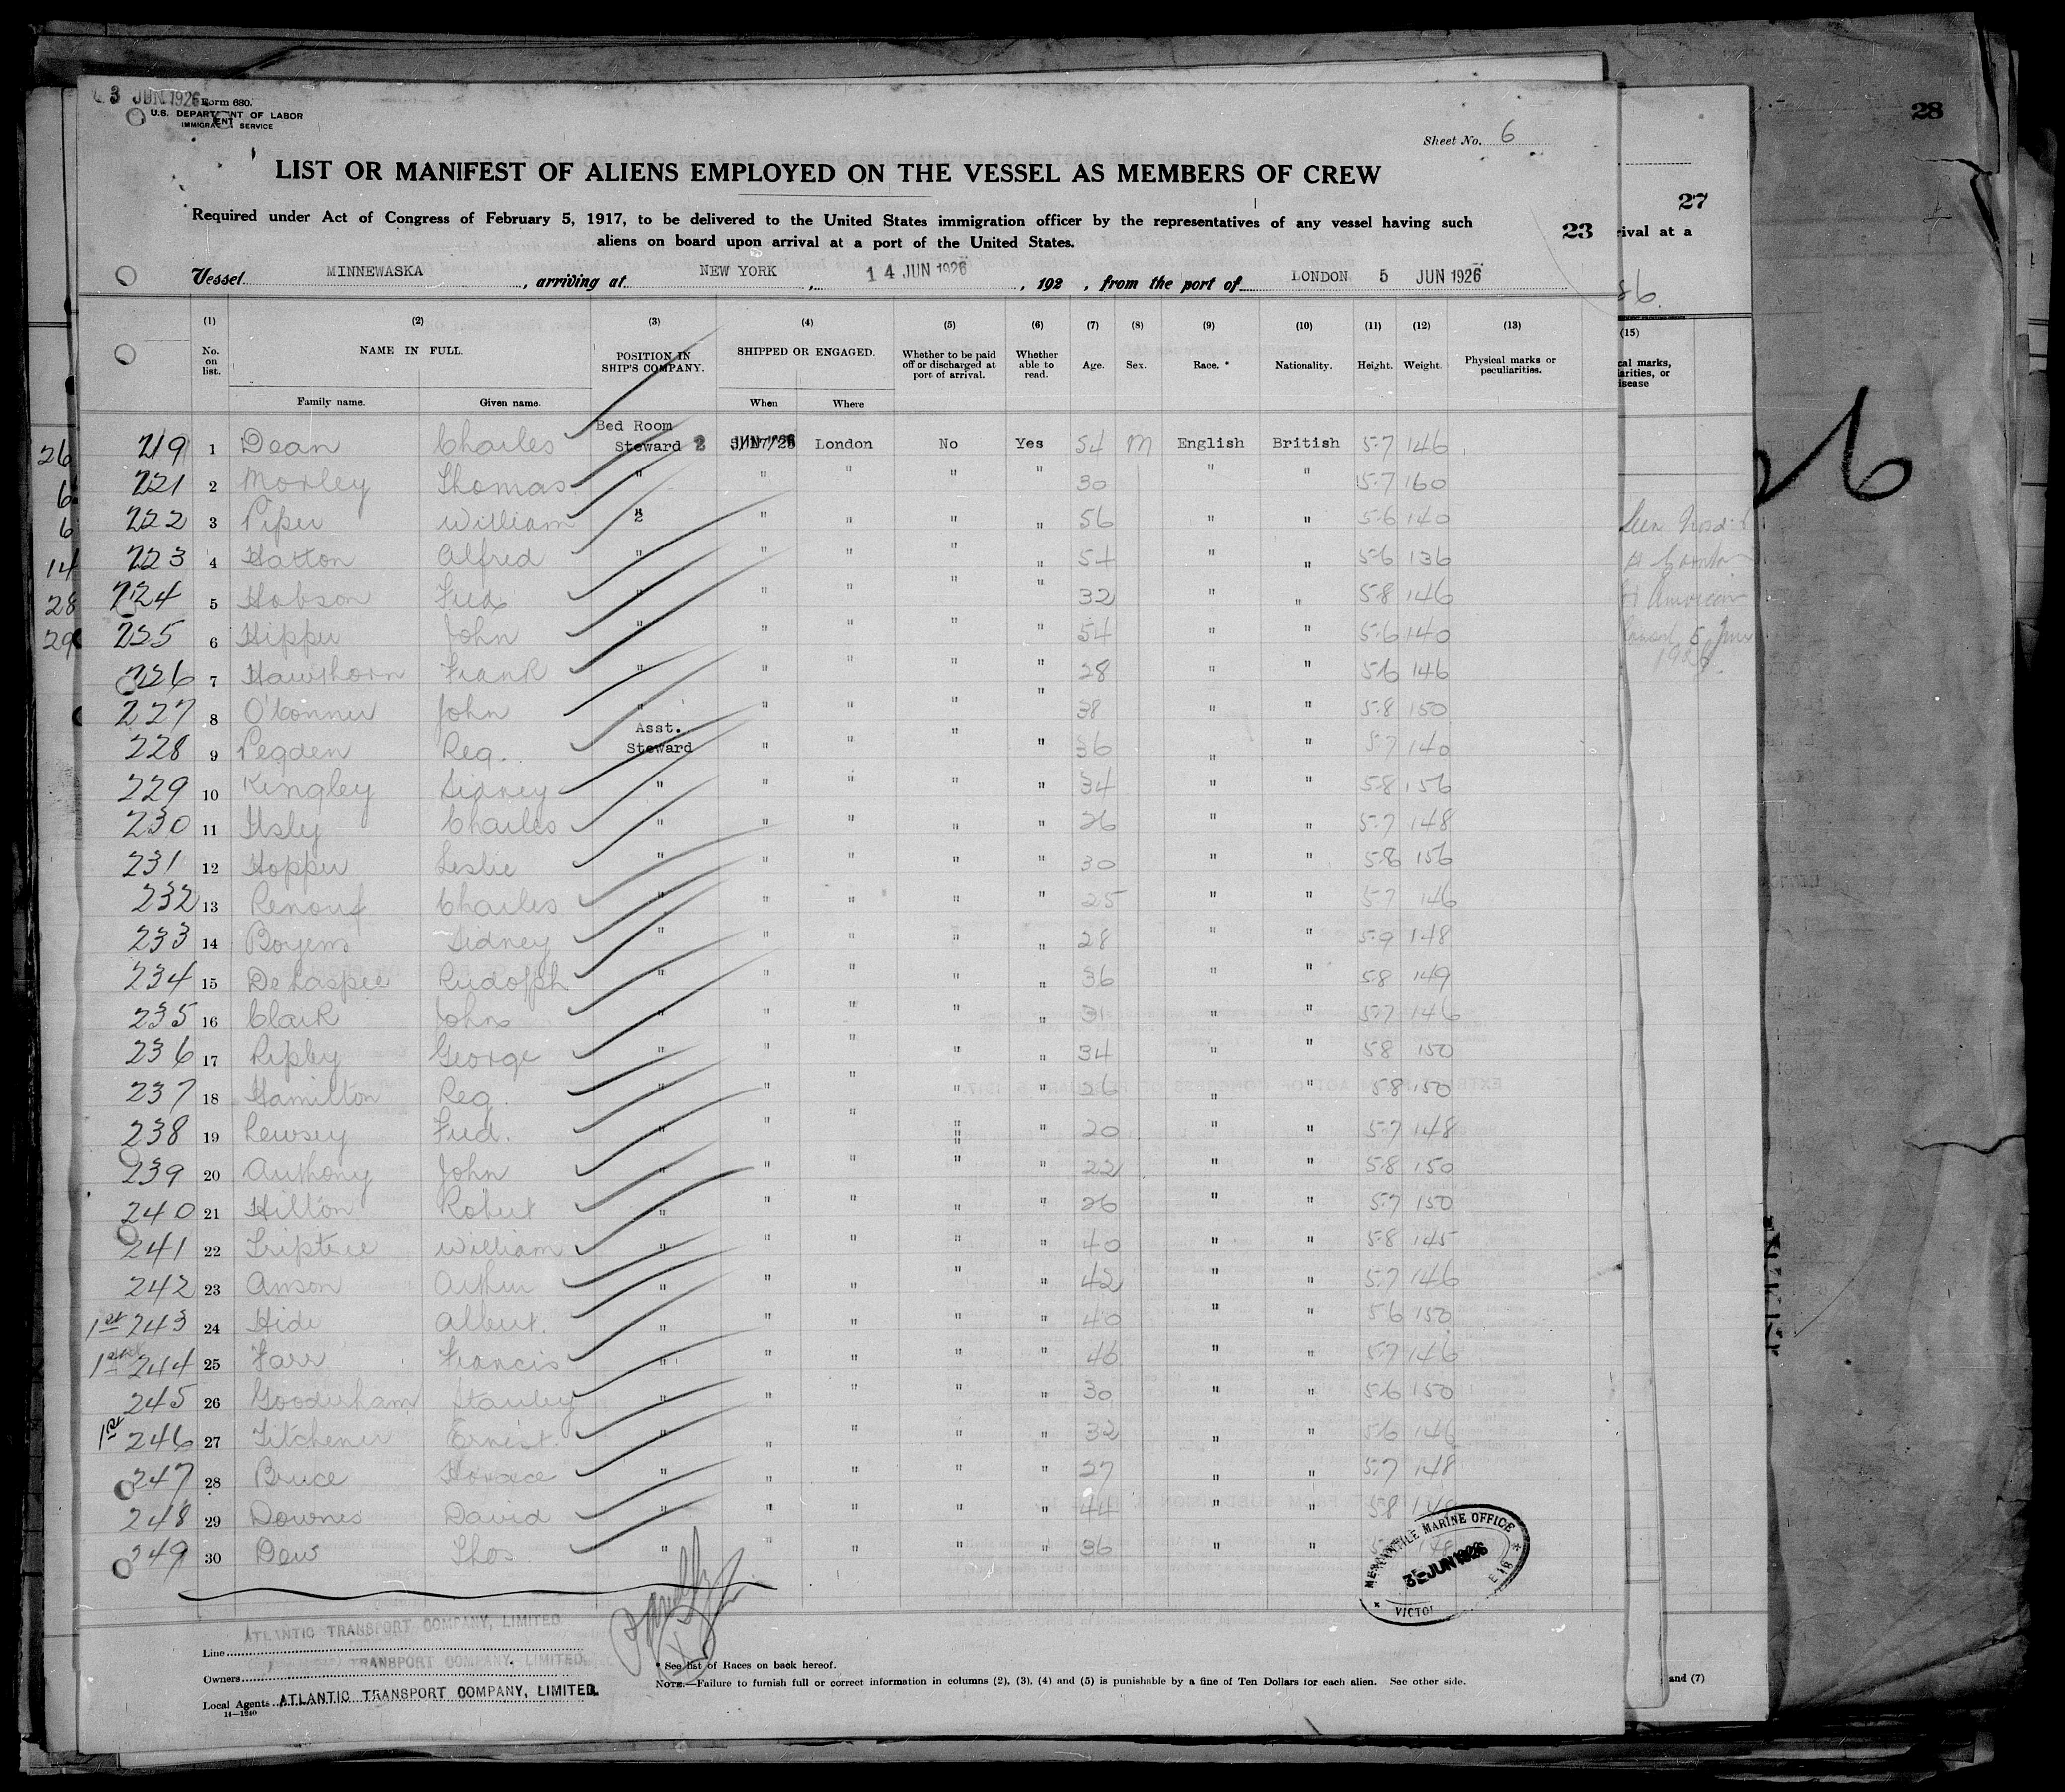 3 JUN 1926
Form 680.
U.S. DEPARTMENT OF LABOR
IMMIGRANT SERVICE
28
Sheet No. 6
LIST OR MANIFEST OF ALIENS EMPLOYED ON THE VESSEL AS MEMBERS OF CREW
27
Required under Act of Congress of February 5, 1917, to be delivered to the United States immigration officer by the representatives of any vessel having such
23 rival at a
aliens on board upon arrival at a port of the United States.
Vessel MINNEWASKA, arriving at NEW YORK, 14 JUN 1926, 192 , from the port of LONDON 5 JUN 1926
(1) (2) (3) (4) (5) (6) (7) (8) (9) (10) (11) (12) (13) (15)
No. on list. NAME IN FULL. POSITION IN SHIP'S COMPANY. SHIPPED OR ENGAGED. Whether to be paid off or discharged at port of arrival. Whether able to read. Age. Sex. Race. * Nationality. Height. Weight. Physical marks or peculiarities.
cal marks, larities, or isease
Family name. Given name. When Where
219 1 Dean Charles Bed Room Steward 2 London No Yes 54 M English British 5-7 146
221 2 Morley Thomas " " " " " 30 " " 5-7 160
222 3 Piper William " " " " " 56 " " 5-6 140
223 4 Hatton Alfred " " " " " 54 " " 5-6 136
224 5 Hobson Fred " " " " " 32 " " 5-8 146
225 6 Hipper John " " " " " 54 " " 5-6 140
226 7 Hawthorn Frank " " " " " 28 " " 5-6 146
227 8 O'Conner John " " " " " 38 " " 5-8 150
228 9 Pegden Reg. Asst. Steward " " " " 36 " " 5-7 140
229 10 Kingley Sidney " " " " " 34 " " 5-8 156
230 11 Ilsly Charles " " " " " 26 " " 5-7 148
231 12 Hopper Leslie " " " " " 30 " " 5-8 156
232 13 Renouf Charles " " " " " 25 " " 5-7 146
233 14 Boyens Sidney " " " " " 28 " " 5-9 148
234 15 DeLaspee Rudolph " " " " " 36 " " 5-8 149
235 16 Clark John " " " " " 31 " " 5-7 146
236 17 Ripby George " " " " " 34 " " 5-8 150
237 18 Hamilton Reg. " " " " " 26 " " 5-8 150
238 19 Lewsey Fred. " " " " " 20 " " 5-7 148
239 20 Anthony John " " " " " 22 " " 5-8 150
240 21 Hilton Robert " " " " " 26 " " 5-7 150
241 22 Triptree William " " " " " 40 " " 5-8 145
242 23 Anson Arthur " " " " " 42 " " 5-7 146
1st 243 24 Hide Albert. " " " " " 40 " " 5-6 150
244 25 Farr Francis " " " " " 46 " " 5-7 146
245 26 Gooderham Stanley " " " " " 30 " " 5-6 150
1st 246 27 Titchener Ernest. " " " " " 32 " " 5-6 146
247 28 Bruce Horace " " " " " 27 " " 5-7 148
248 29 Downes David " " " " " 44 " " 5-8
249 30 Dew Thos " " " " " 36 " "
26
6
6
14
28
29
26
1926.
MERCANTILE MARINE OFFICE
JUN 1926
Line ATLANTIC TRANSPORT COMPANY, LIMITED
Owners TRANSPORT COMPANY, LIMITED.
Local Agents ATLANTIC TRANSPORT COMPANY, LIMITED.
14—1240
* See list of Races on back hereof.
NOTE.—Failure to furnish full or correct information in columns (2), (3), (4) and (5) is punishable by a fine of Ten Dollars for each alien. See other side.
and (7)